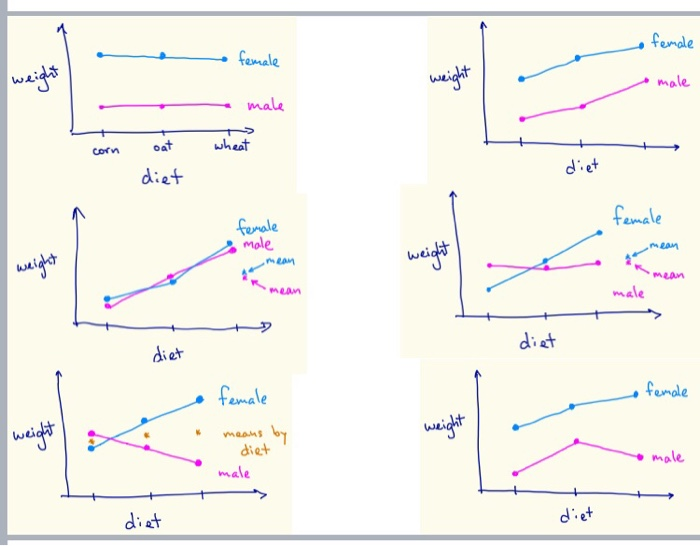 weight
female
male
corn oat wheat
diet
weight
female
male
diet
weight
female
male
mean
mean
diet
weight
female
mean
mean
male
diet
weight
female
means by
diet
male
diet
weight
female
male
diet